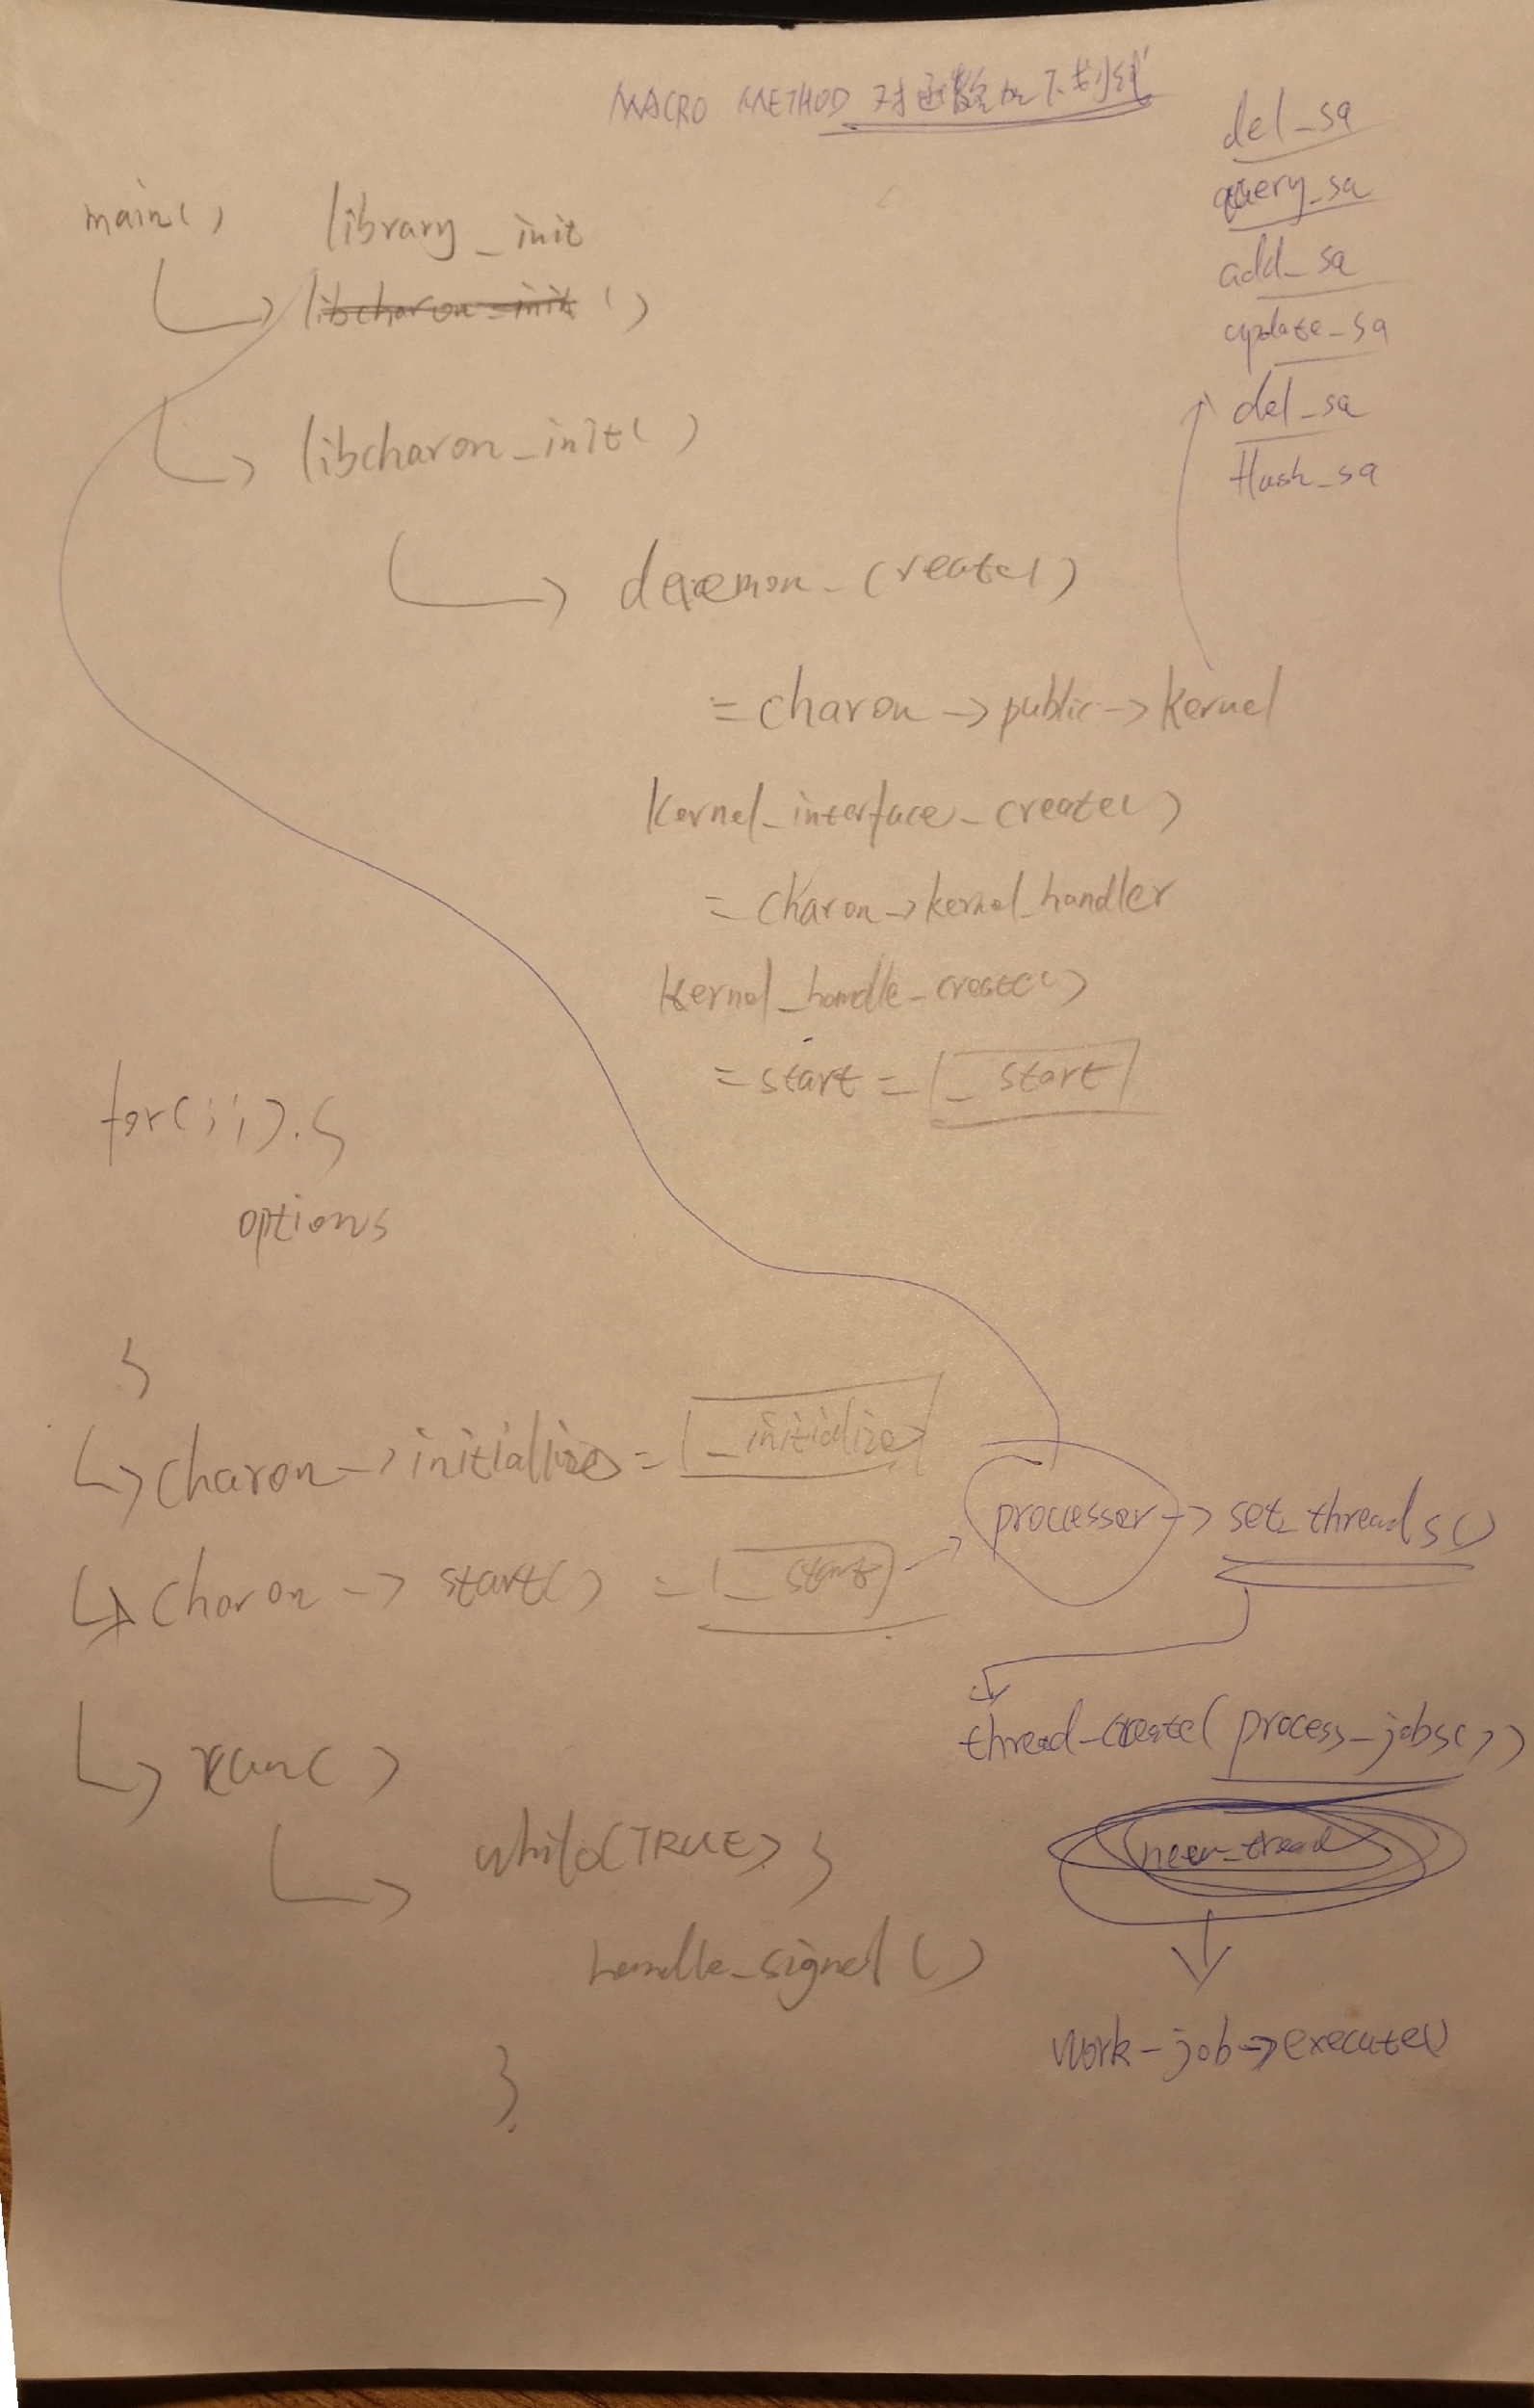 MACRO METHOD 对函数加下划线
del_sa
query_sa
add_sa
update_sa
del_sa
flush_sa
main()
library_init
libcharon_init()
libcharon_init()
daemon_create()
= charon -> public -> kernel
kernel_interface_create()
= charon -> kernel_handler
kernel_handle_create()
= start = _start
for(;;).{
options
}
charon -> initialize = _initialize
charon -> start() = _start
processer -> set_threads()
thread_create(process_jobs())
new_tread
work-job->execute()
run()
while(TRUE) {
handle_signel()
}